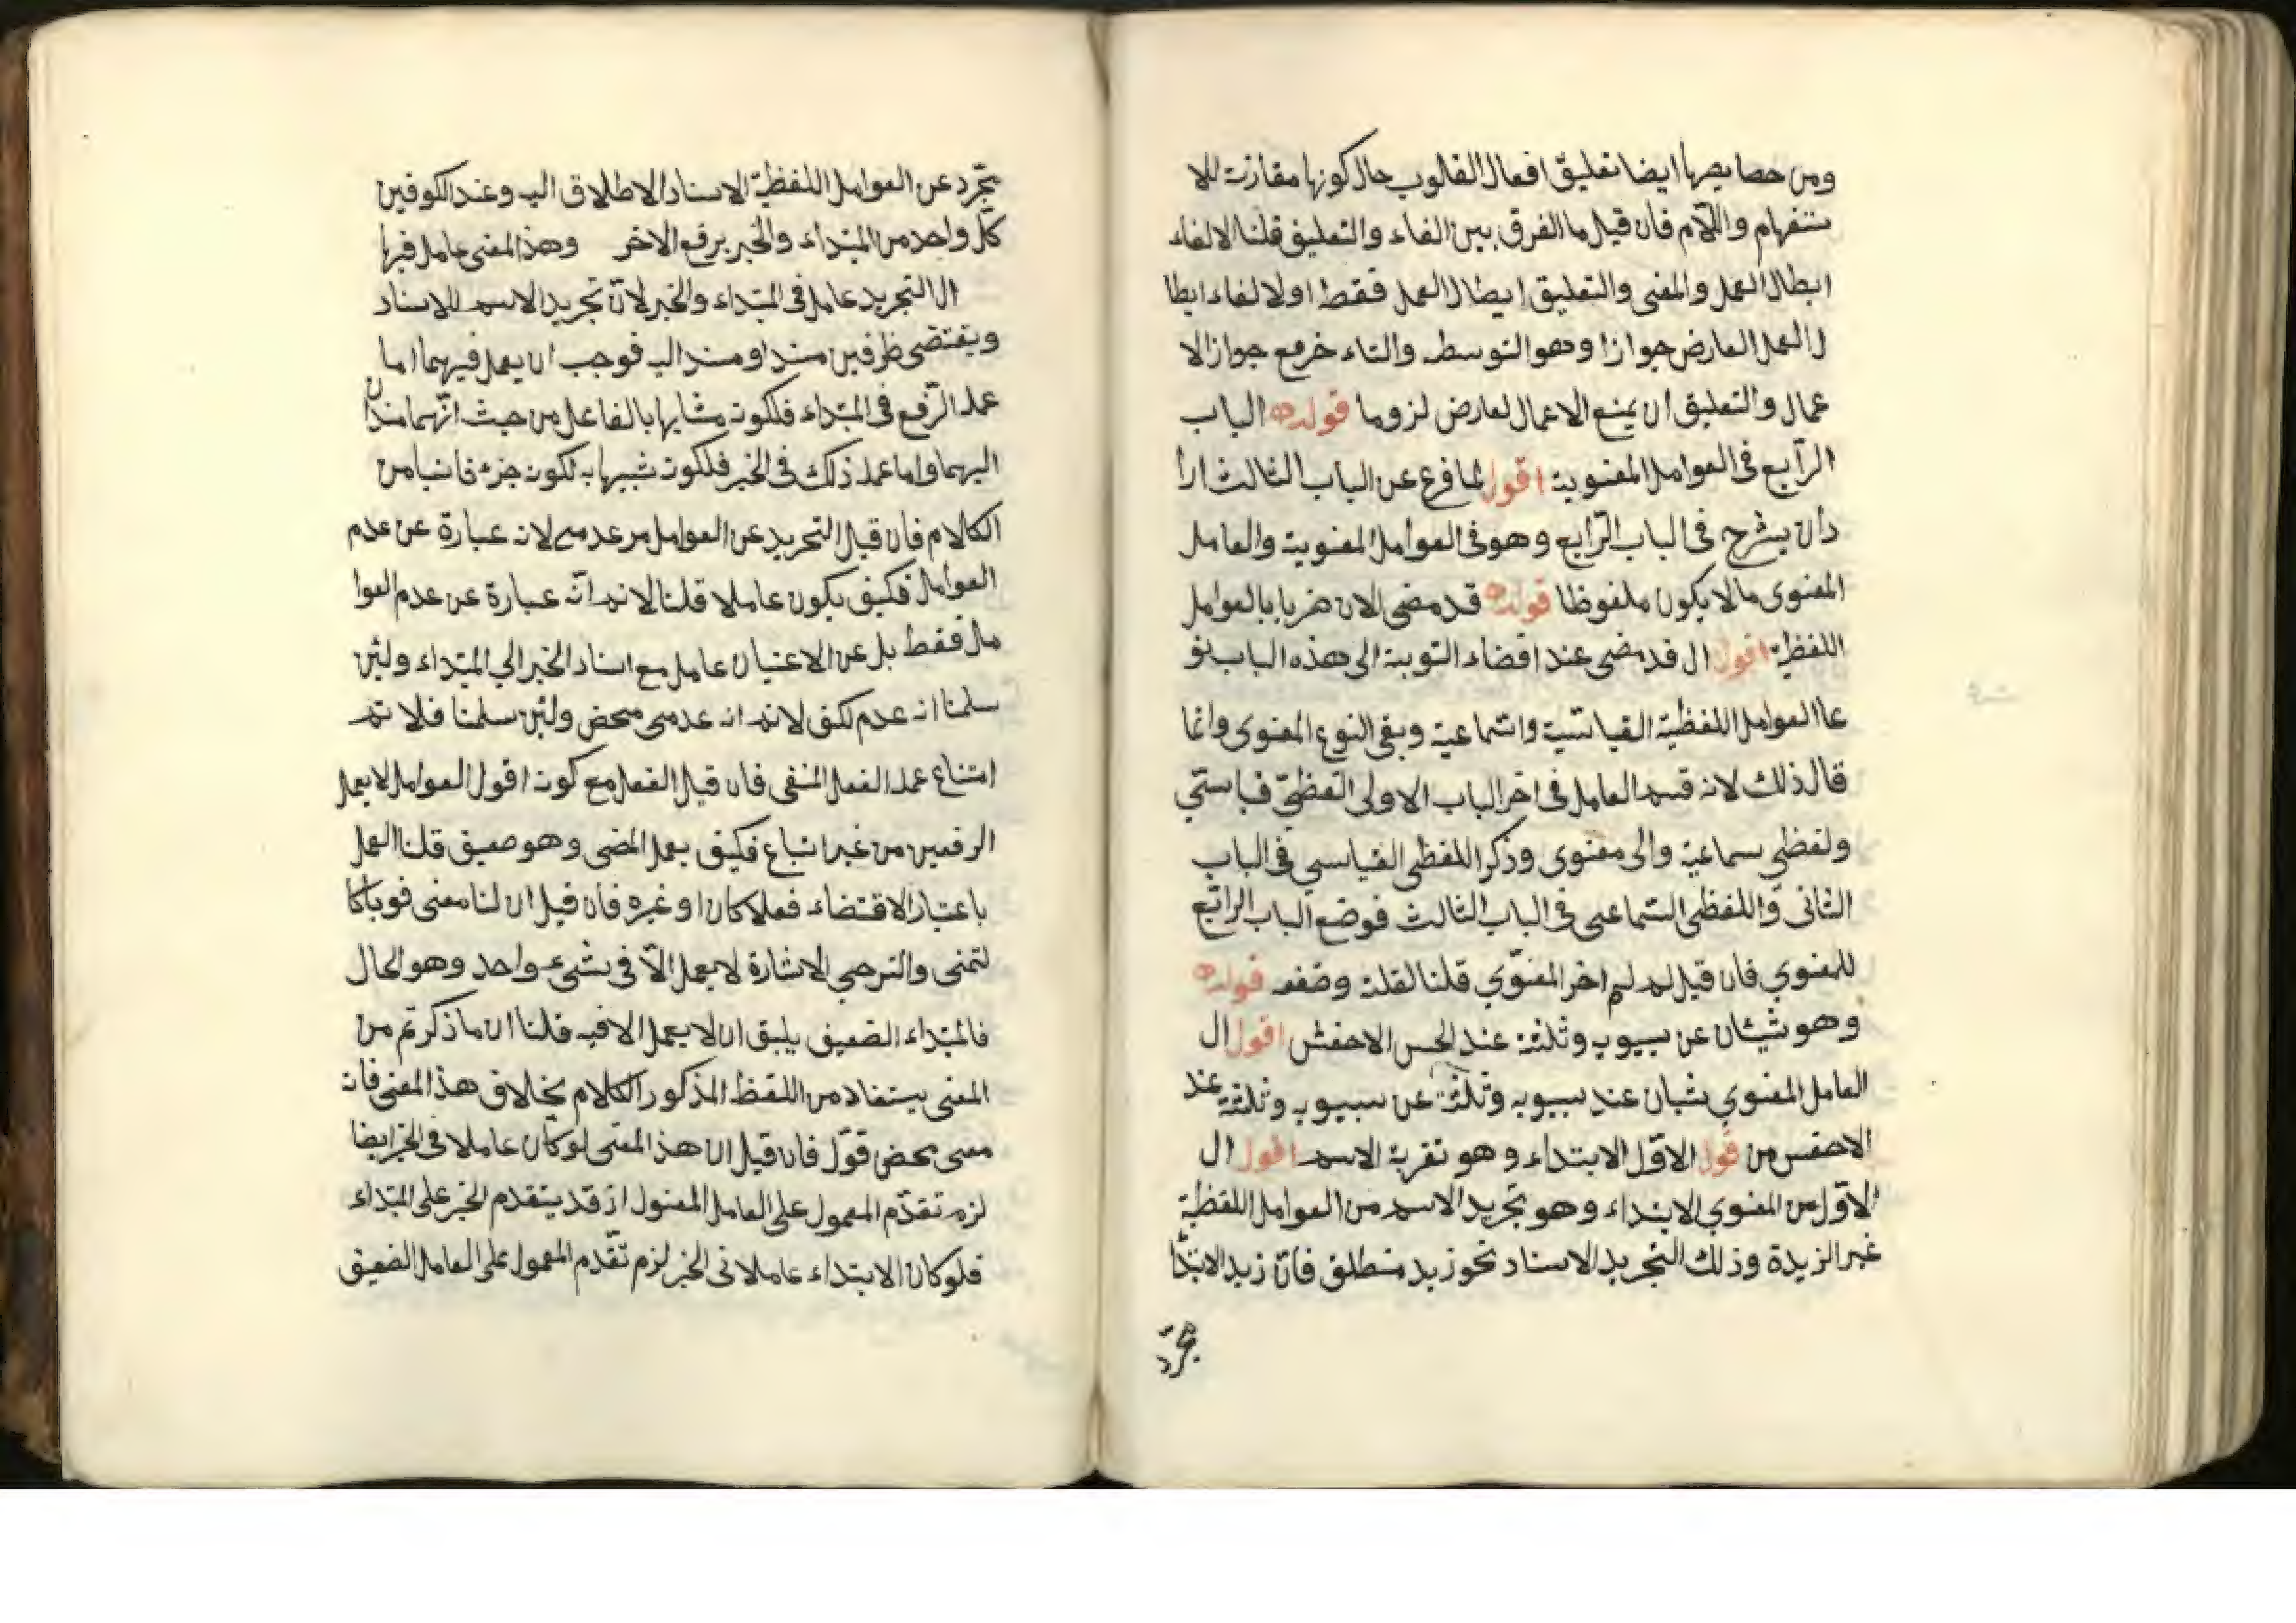 ومن خصايصها ايضا تعليق افعال القلوب حال كونها مقارنة للا
ستفهام واللام فان قيل ما الفرق بين الفاء والتعليق قلنا الالغاء
ابطال العمل والمعنى والتعليق ابطال العمل فقط او لالغاء ابطا
ل العمل العارض جوازا وهو التوسط والتاء خر مع جواز الا
عمال والتعليق ان يمنع الاعمال لعارض لزوما قوله الباب
الرابع في العوامل المعنوية اقول لما فرغ عن الباب الثالث ارا
د ان يشرح في الباب الرابع وهو في العوامل المعنوية والعامل
المعنوى ما لا يكون ملفوظا قوله قد مضى الان ضربا بالعوامل
اللفظية اقول ال قد مضى عند افضاء التوبة الى هذه الباب نو
عا العوامل اللفظية القياسية والسماعية وبقى النوع المعنوى وانما
قال ذلك لانه قسم العامل فى اخر الباب الاولى الفظىّ قياستى
ولفظي سماعية والى معنوى وذكر اللفظى القياسي فى الباب
الثانى واللفظى السماعى فى الباب الثالث فوضع الباب الرابع
للمعنوي فان قيل لم اخر المعنوّي قلنا لقلته وضعفه قوله
وهو شيئان عن سيبويه وثلثة عند الحسن الاخفش اقول ال
العامل المعنوي شيان عند سيبويه وثلثة عن سيبويه وثلثة عند
الاخفس من قول الاوّل الابتداء وهو تقرية الاسم اقول ال
الاوّل من المعنوي الابتداء وهو تجريد الاسم من العوامل اللفظية
غير الزيدة وذلك التجريد الاسناد نحو زيد منطلق فانّ زيد الابتدا
تجرّد
تجرّد عن العوامل اللفظية الاسناد الاطلاق اليه وعند الكوفين
كلّ واحد من المبتداء والخبر يرفع الاخر وهذ المعنى عامل فيها
ال التجريد عامل فى المبتداء والخبر لانّ تجريد الاسم للاسناد
ويقتضى طرفين مسندا ومسند اليه فوجب ان يعمل فيهما اما
عمله الرّفع فى المبتداء فلكونه مشابها بالفاعل من حيث انّهما مسندان
اليهما واما عمله ذلك فى الخبر فلكونه شبيها به لكونه جزء ثانيا من
الكلام فان قيل التجريد عن العوامل مر عدمى لانه عبارة عن عدم
العوامل فكيف يكون عاملا قلنا لانم انّه عبارة عن عدم العوا
مل فقط بل عن الاعتيان عامل مع اسناد الخبر الي المبتداء ولئن
سلمنا انه عدم لكن لانم انه عدمى محض ولئن سلمنا فلا نم
امتناع عمله الفعل المنفى فان قيل الفعل مع كونه اقول العوامل لا يعمل
الرفعين من غير اتباع فكيف يعمل المضى وهو ضعيف قلنا العمل
باعتبار الاقتضاء فعلا كان او غيره فان قيل ان لنا معنى قويا كا
لتمنى والترجي الاشارة لا يعمل الاّ فى شىء واحد وهو الحال
فالمبتداء الضعيف يليق ان لا يعمل الا فيه قلنا ان ما ذكرتم من
المعنى يستفاد من اللفظ المذكور الكلام بخلاف هذ المعنى فانه
معنى محض قوّل فان قيل ان هذ المعنى لو كان عاملا فى الخبر ايضا
لزم تقدّم المعمول على العامل المعنول اذ قد يتقدم الخبر على المبتداء
فلو كان الابتداء عاملا فى الخبر لزم تقّدم المعمول على العامل الضعيف